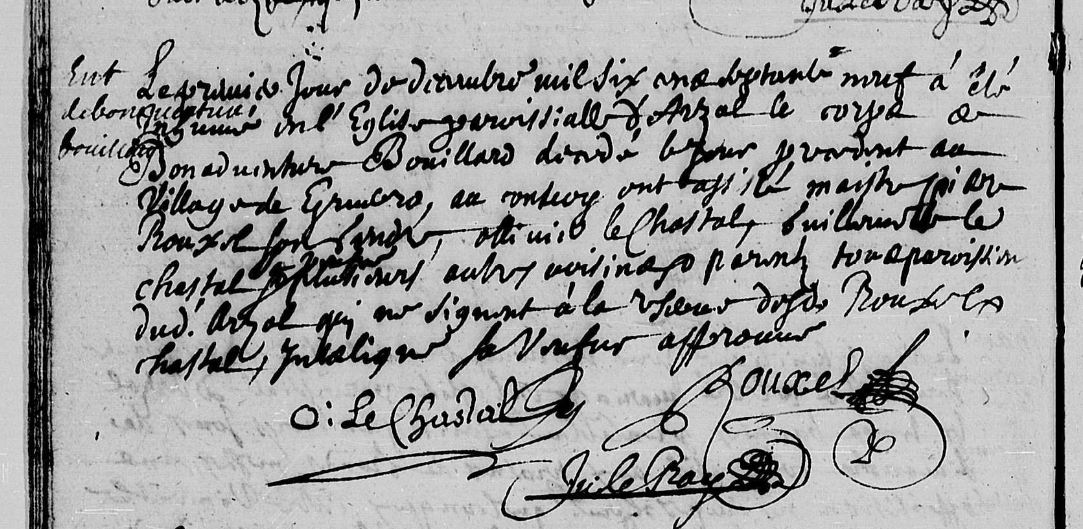 Ent
de bonaventure
bouillard
Le premier Jour de decembre mil six cens septante neuf á été
Inhumé en l'Eglise paroissialle d'Arzal le corps de
Bonadventure Bouillard decedé le jour precedent au
Village de au convoy ont assisté maistre piere
Rouxel son gendre, ollivier le Chastal, Guillaume le
chastal & plusieurs autres voisins & parents tous paroissiens
dud. Arzal qui ne signent á la reserve desds Rouxel &
chastal, Sa Veufve
O: Le Chastal
Rouxel
Le Ray